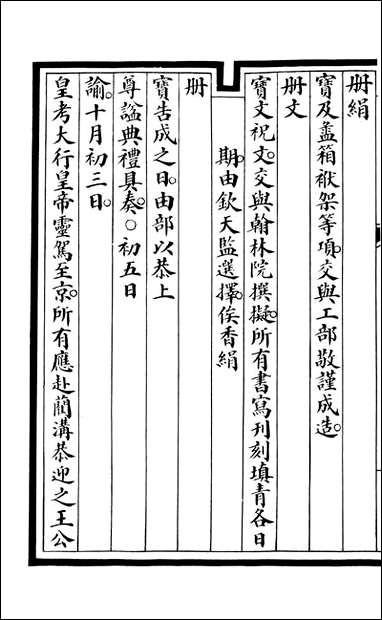 册絹
寶及盝箱袱架等項。交與工部敬謹成造。
册文
寶文祝文。交與翰林院撰擬。所有書寫刊刻填青各日
期。由欽天監選擇。俟香絹
册
寶告成之日。由部以恭上
尊諡典禮具奏。○初五日
諭。十月初三日。
皇考大行皇帝靈駕至京。所有應赴蘭溝恭迎之王公